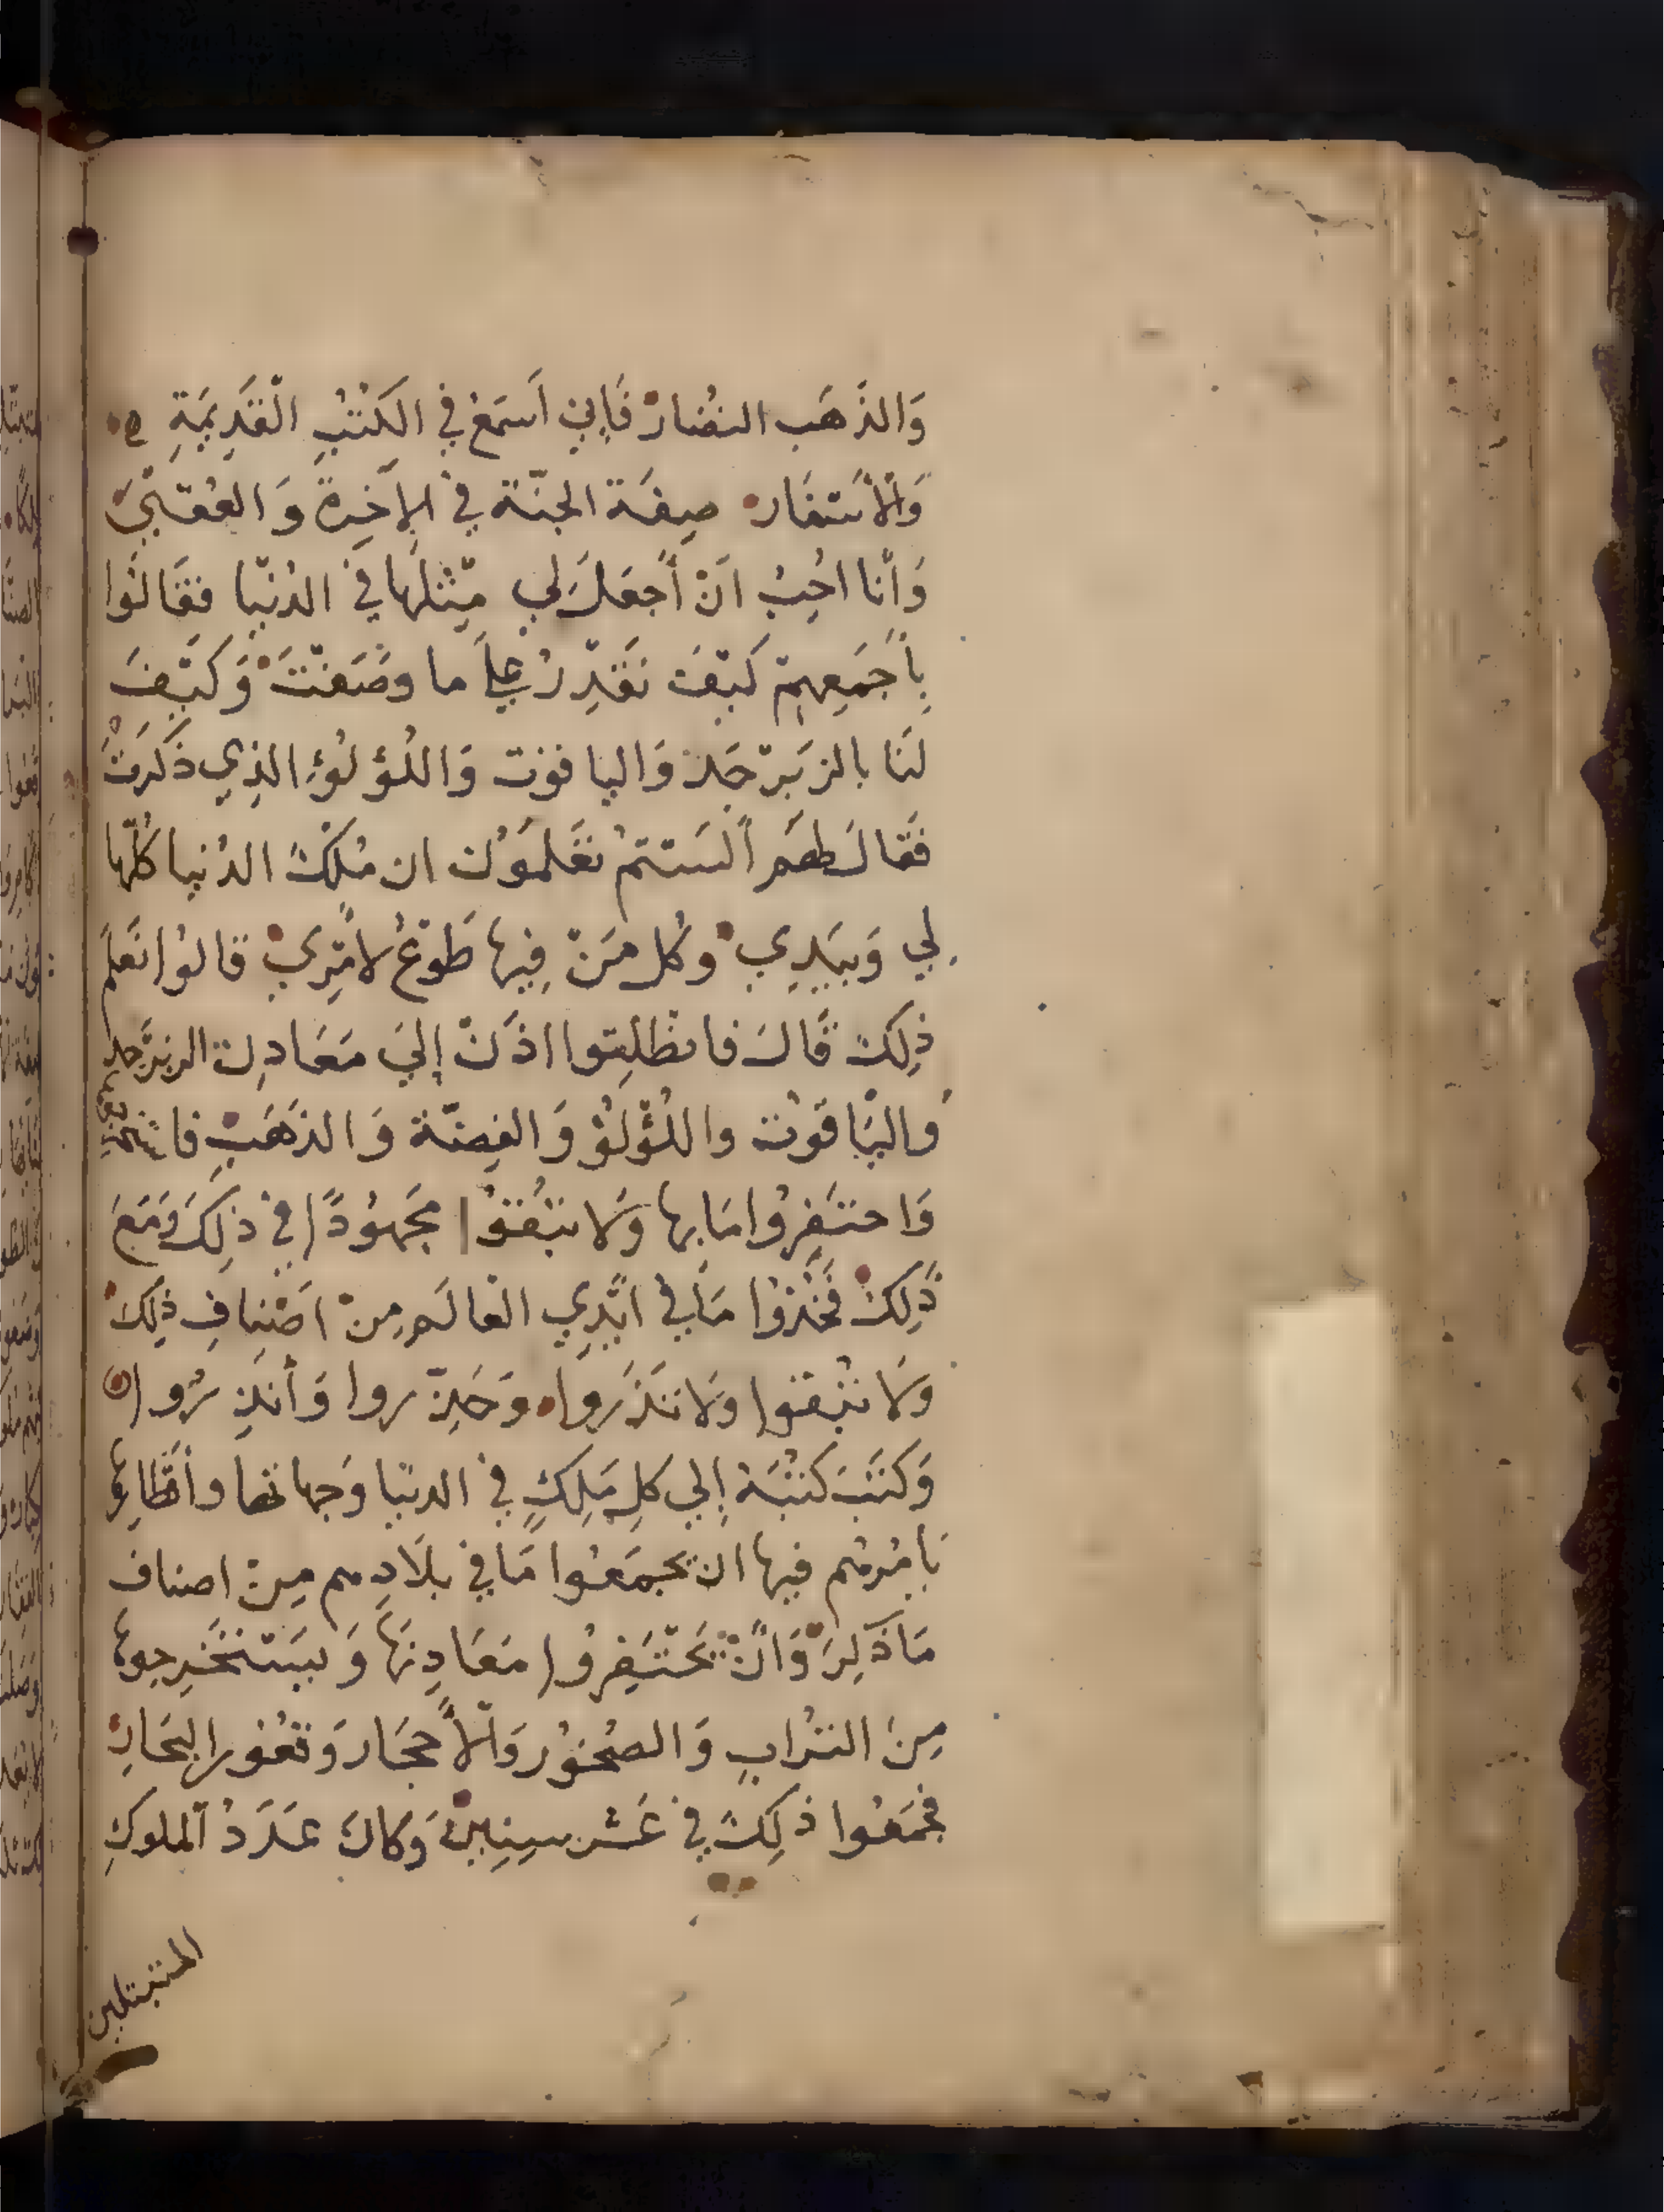 وَالذَّهَب النُضارْ فَإِنِي اَسمَعُ فِي الكُتُبِ الْقَدِيمَةِ
وَالْأسْفَار صِفَة الجنّة فِي الآخِرَةِ وَالعُقْبَيَ
وَأَنا احُبِبُ اَنْ أَجعَلَ لِي مِثْلَها فِي الدُنْيا فَقَالُوا
بِأَجمَعِهِمْ كَيْفَ نَقْدِرُ عَلَي ما وَصَفْتَ وَكَيْفَ
لَنَا بالزَبَرْجَد وَاليا قوت وَاللُؤلُؤِ الذِي ذَكَرتَ
فَقَالَ لَهُم أَلَستمْ تَعْلَمَوُن ان مُلْكَ الدُنيا كُلّها
لِي وَبِيَدِي وكُل مَنْ فِيها طَوْعُ لأَمْرِي قالُوا نَعلَم
ذلِكَ قَالَ فانطَلِقوا اذَنْ إِليَ مَعَادِن الزبَرْجد
وَاليَاقوُت واللُؤْلُؤ وَالفِضّة وَالذَهَبِ فا ستخرجوها
وَاحتَفِرُوا مَا بها وَلا تبْقُوا مَجهُودًا فِي ذلِكَ وَمَعَ
ذَلِكَ فَخُذوُا مَا فِي ايْدِي العالَم مِنْ اصْنافِ ذلِكَ
وَلا تُبْقوا وَلا تَذَروا وَحَذِّروا وَأنذِرُوا
وَكَتَبَ كُتُبَهُ إلي كلِ مَلِكٍ فِي الدنيَا وَجِهاتها وأقطَارِها
يَامُرهُم فيها ان يجمَعُوا مَا فِي بِلَادِهم مِنْ اصناف
مَا ذكِرَ وَانْ يَحْتَفِروُا مَعَادِنَهَا وَيستَخْرِجوها
مِنَ التُرَابِ وَالصُخوُر وَالأَحجَار وَقعُور البِحَارِ
فجمَعُوا ذلِكَ فِي عَشر سِنِينَ وَكَانَ عَدَدُ الملوكِ